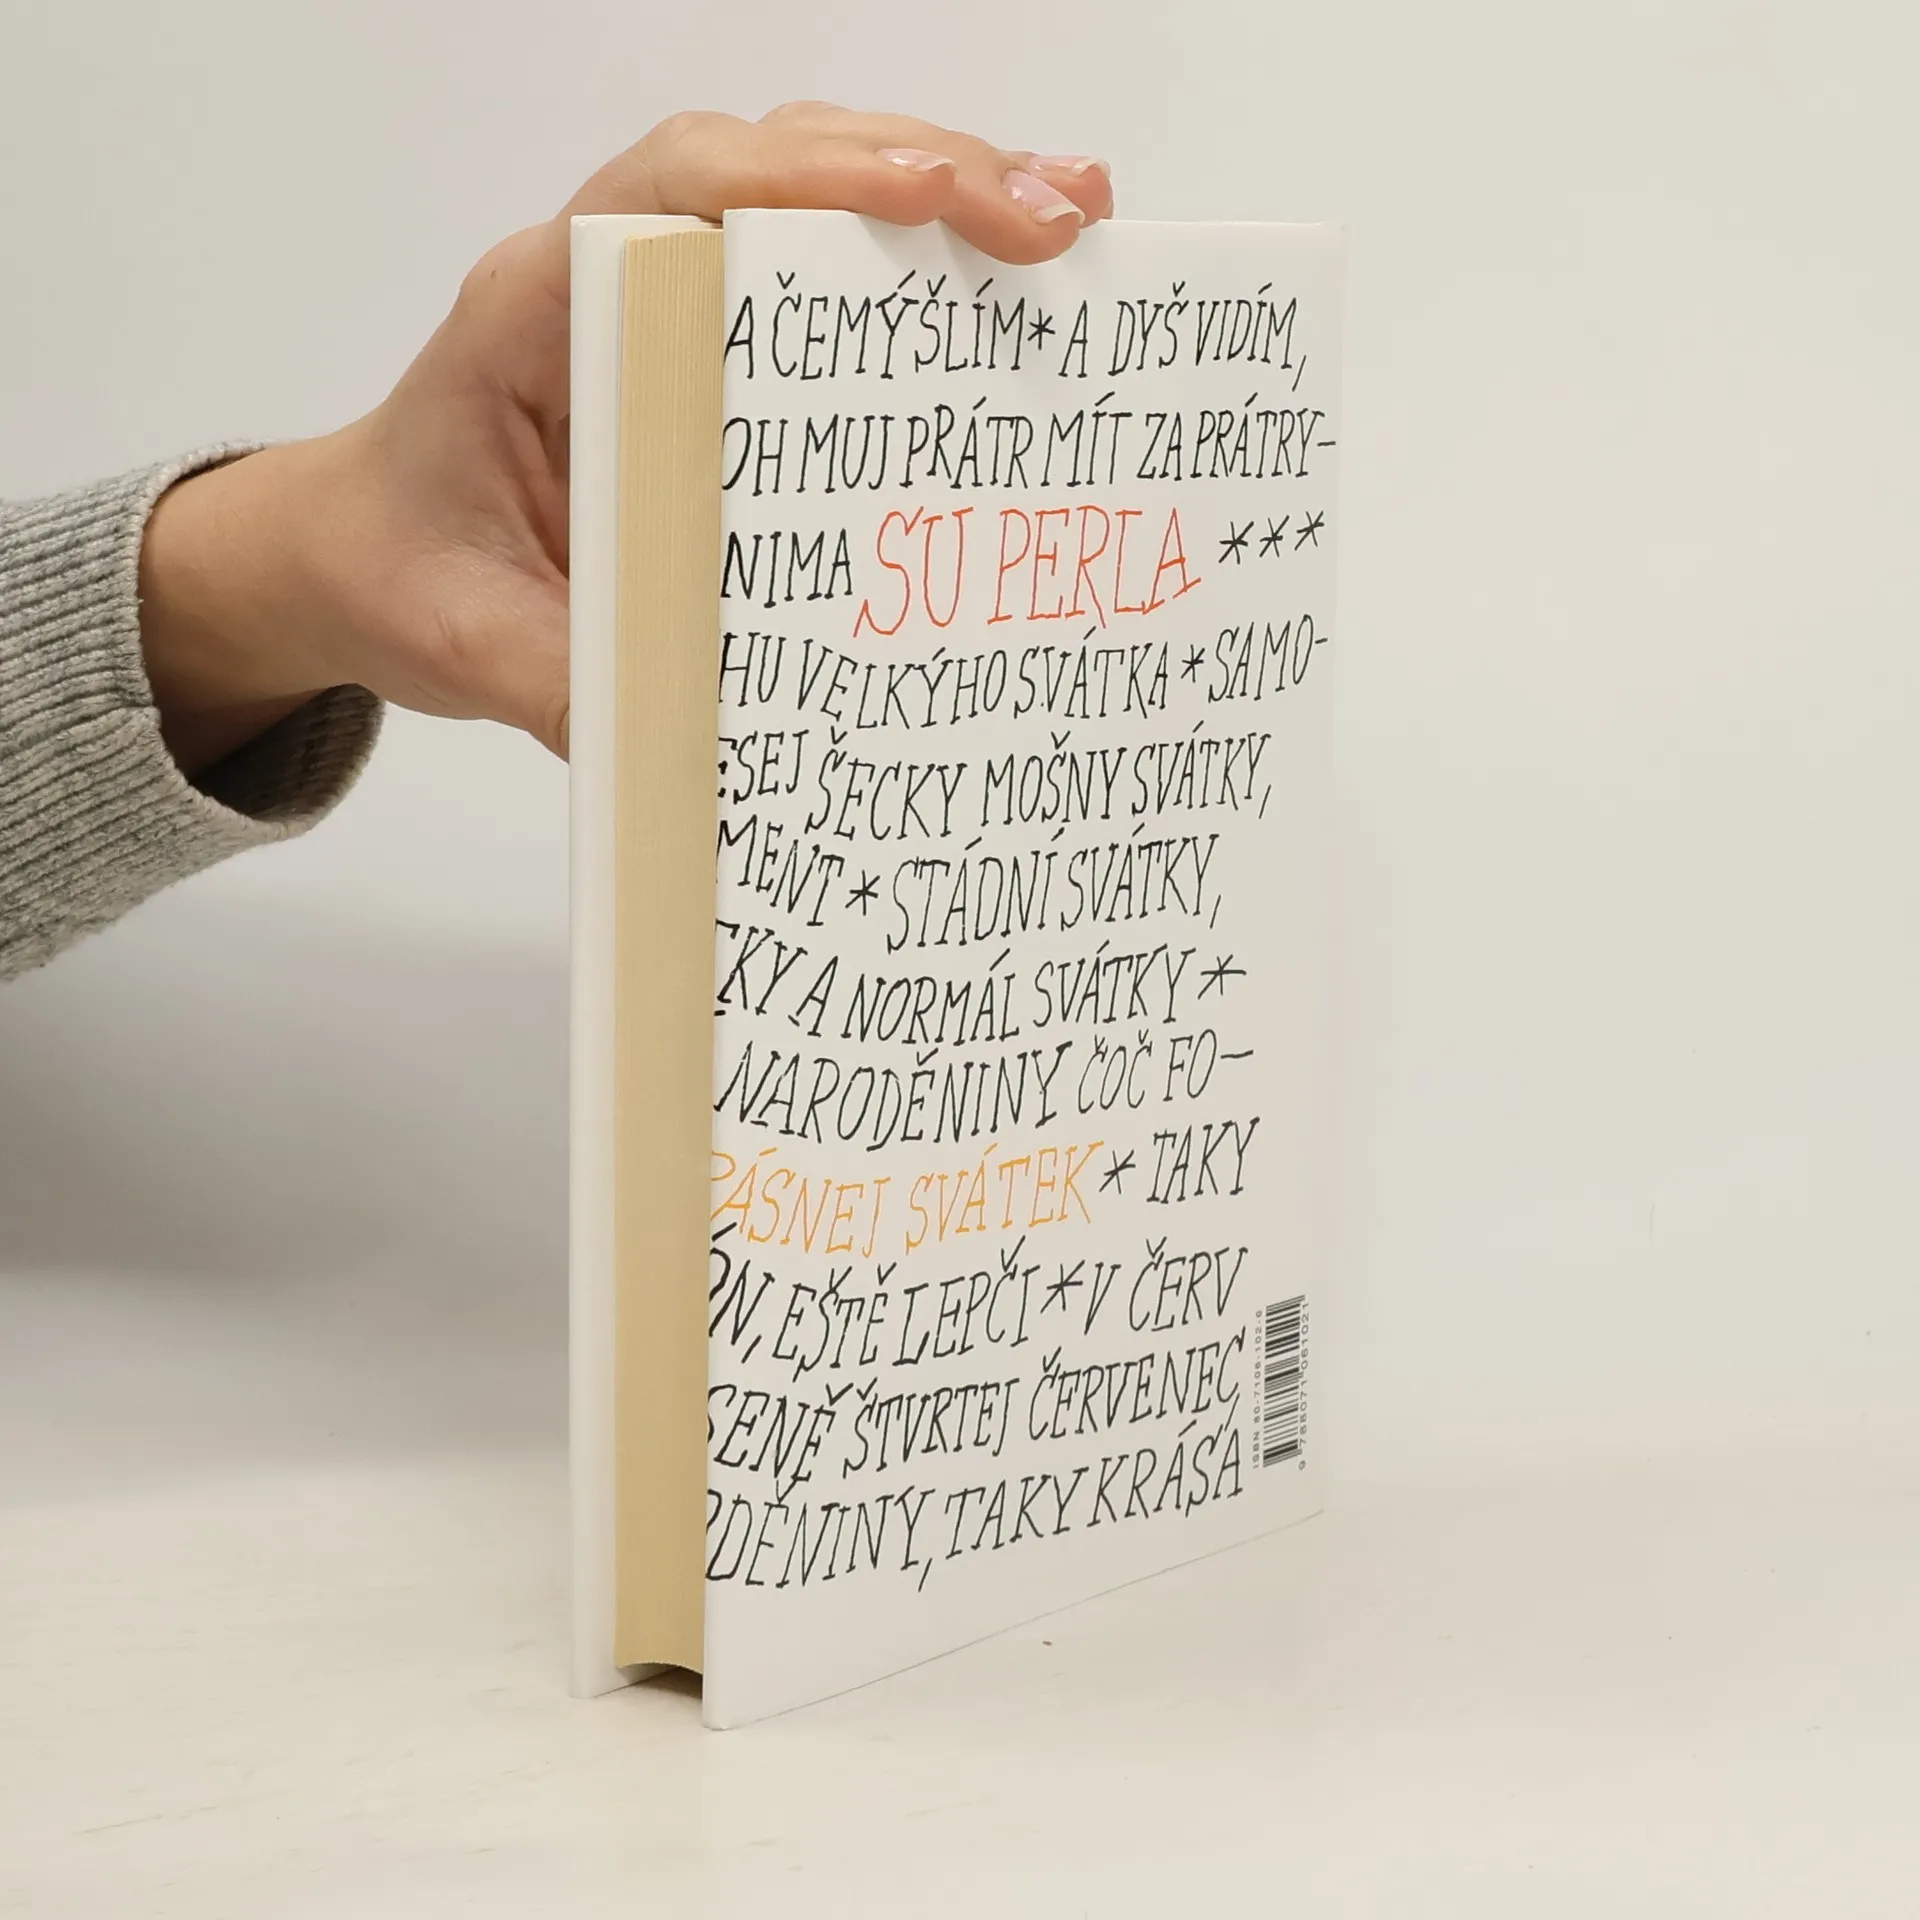 A ČEMÝŠLÍM * A DYŠ VIDÍM,
OH MUJ PRÁTR MÍT ZA PRÁTRY-
NIMA SU PERLA ***
HU VELKÝHO SVÁTKA * SAMO-
ESEJ ŠECKY MOŠNY SVÁTKY,
MENT * STÁDNÍ SVÁTKY,
TKY A NORMÁL SVÁTKY *
NARODĚNINY ČOČ FO-
RÁSNEJ SVÁTEK * TAKY
ÓN, EŠTĚ LEPČI * V ČERV
SENĚ ŠTVRTEJ ČERVENEC
ODĚNINY, TAKY KRÁSÁ
ISBN 80-7106-102-6
9 788071 061021